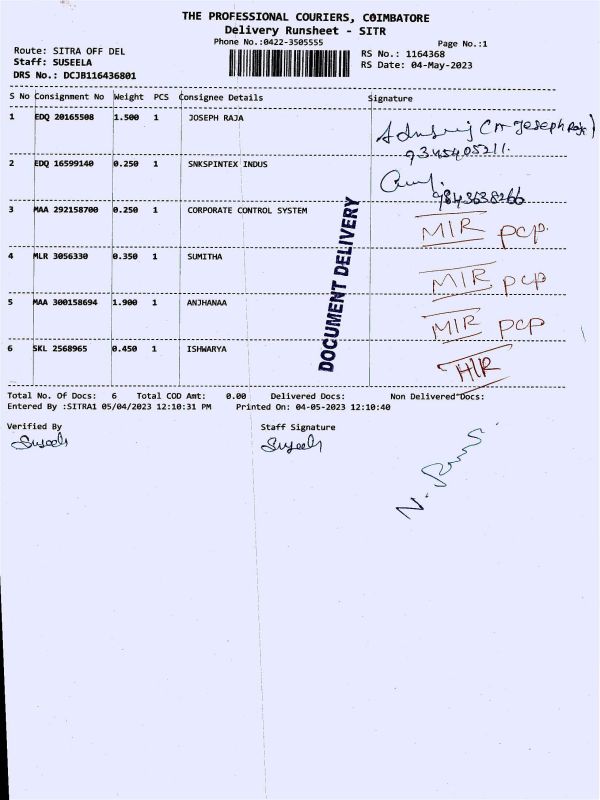 THE PROFESSIONAL COURIERS, COIMBATORE
Delivery Runsheet - SITR
Phone No.:0422-3505555
Page No.:1
Route: SITRA OFF DEL
Staff: SUSEELA
DRS No.: DCJB116436801
RS No.: 1164368
RS Date: 04-May-2023
S No Consignment No Weight PCS Consignee Details Signature
1 EDQ 20165508 1.500 1 JOSEPH RAJA
(A-Joseph Raja)
9345405211.
2 EDQ 16599140 0.250 1 SNKSPINTEX INDUS
9843638266
3 MAA 292158700 0.250 1 CORPORATE CONTROL SYSTEM MIR pcp.
4 MLR 3056330 0.350 1 SUMITHA MIR pcp
5 MAA 300158694 1.900 1 ANJHANAA MIR pcp
6 SKL 2568965 0.450 1 ISHWARYA HIR
DOCUMENT DELIVERY
Total No. Of Docs: 6 Total COD Amt: 0.00 Delivered Docs: Non Delivered Docs:
Entered By :SITRA1 05/04/2023 12:10:31 PM Printed On: 04-05-2023 12:10:40
Verified By Staff Signature
Suseela Suseela
N.